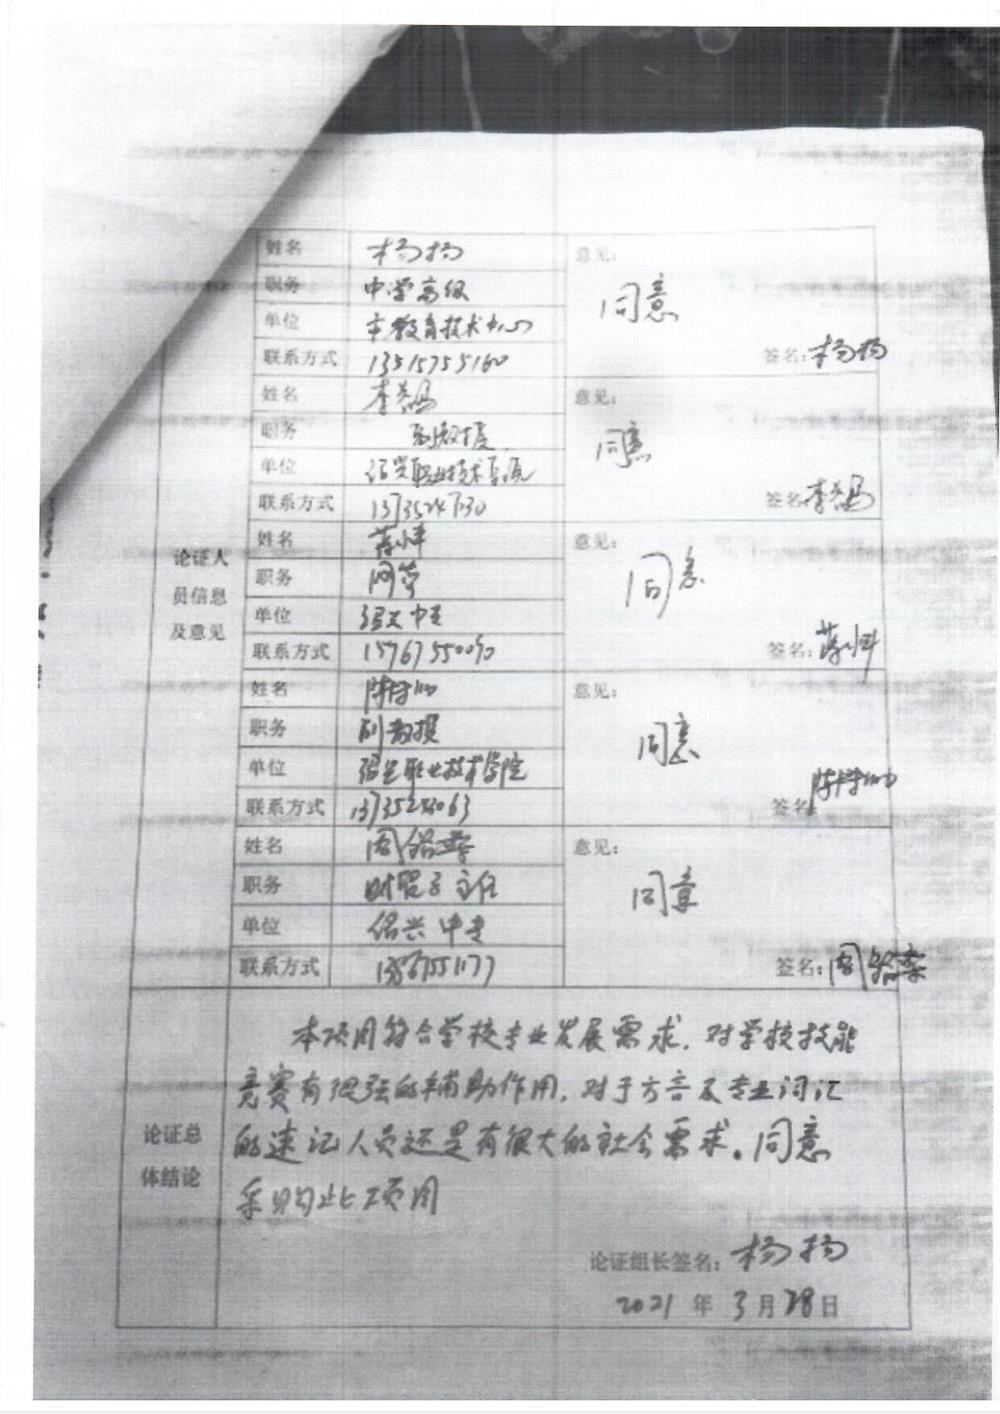 姓名 杨扬 意见:
职务 中学高级 同意
单位 市教育技术中心
联系方式 13515755160 签名:杨扬
姓名 意见:
职务 副教授 同意
单位 绍兴职业技术学院
联系方式 签名:
姓名 蒋小平 意见:
职务 同意
单位 绍兴中专
联系方式 签名:蒋小平
姓名 意见:
职务 副教授 同意
单位 绍兴职业技术学院
联系方式 签名:
姓名 意见:
职务 主任 同意
单位 绍兴中专
联系方式 签名:
论证人
员信息
及意见
本项目符合学校专业发展需求,对学校技能
竞赛有很强的辅助作用,对于方言及专业词汇
的速记人员还是有很大的社会需求。同意
采购此项目
论证总
体结论
论证组长签名:杨扬
2021 年 3 月 28 日